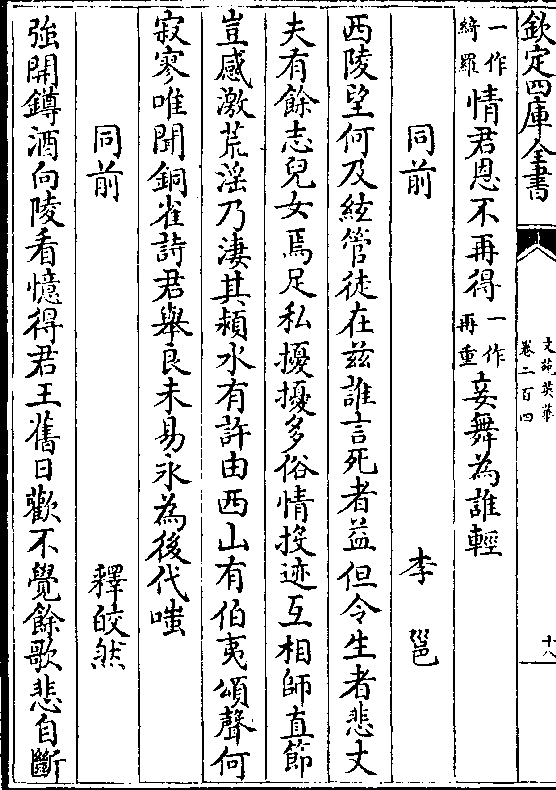 欽定四庫全書
文苑英華
卷二百四
十八
一作綺羅情君恩不再得一作再重妾舞為誰輕
同前 李邕
西陵望何及絃管徒在兹誰言死者益但令生者悲丈
夫有餘志兒女焉足私擾擾多俗情投迹互相師直節
豈感激荒淫乃淒其潁水有許由西山有伯夷頌聲何
寂寥唯聞銅雀詩君舉良未易永為後代嗤
同前 釋皎然
強開鐏酒向陵看憶得君王舊日歡不覺餘歌悲自斷